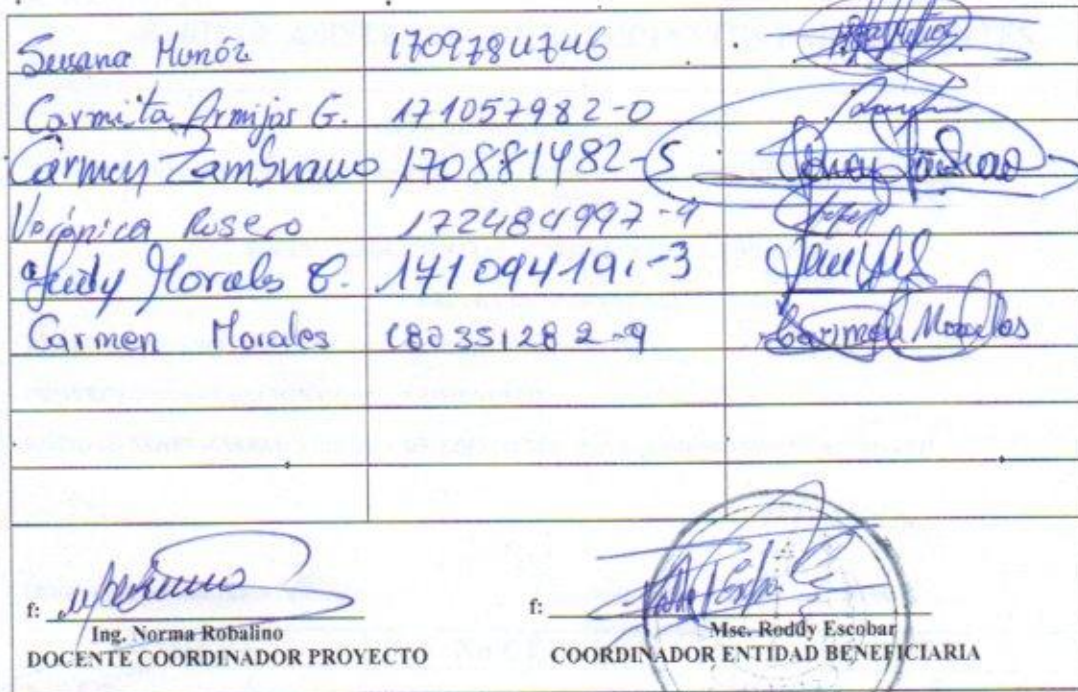 Susana Munóz 1709784746
Carmita Armijos G. 171057982-0
Carmen Zambrano 170881482-5
Verónica Rosero 172484997-9
Morales C. 171094191-3
Carmen Morales 180351282-9 Carmen Morales
f: f:
Ing. Norma Robalino Msc. Roddy Escobar
DOCENTE COORDINADOR PROYECTO COORDINADOR ENTIDAD BENEFICIARIA